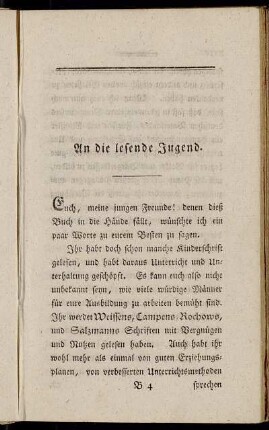 An die lesende Jugend.
Euch, meine jungen Freunde! denen dieß
Buch in die Hände fällt, wünschte ich ein
paar Worte zu eurem Besten zu sagen.
Ihr habt doch schon manche Kinderschrift
gelesen, und habt daraus Unterricht und Un-
terhaltung geschöpft. Es kann euch also nicht
unbekannt seyn, wie viele würdige Männer
für eure Ausbildung zu arbeiten bemüht sind.
Ihr werdet Weissens, Campens, Rochows,
und Salzmanns Schriften mit Vergnügen
und Nutzen gelesen haben. Auch habt ihr
wohl mehr als einmal von guten Erziehungs-
planen, von verbesserten Unterrichtsmethoden
B 4 sprechen